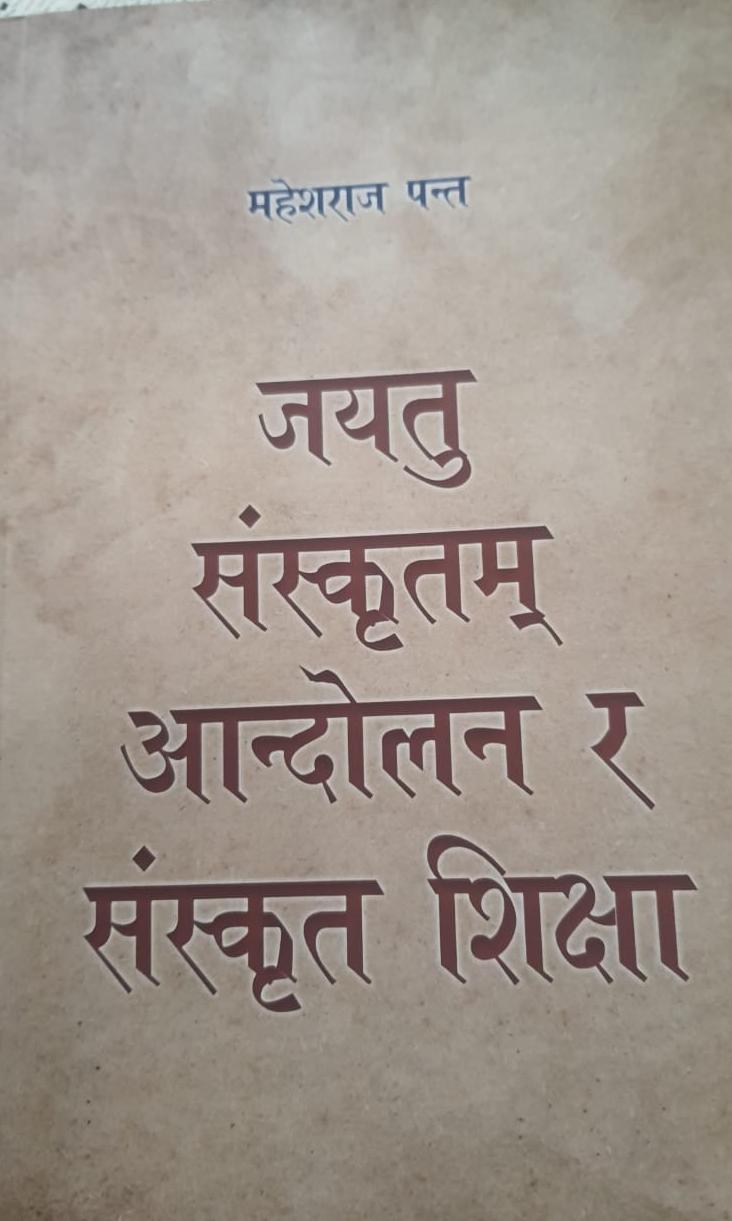 महेशराज पन्त
जयतु
संस्कृतम्
आन्दोलन र
संस्कृत शिक्षा